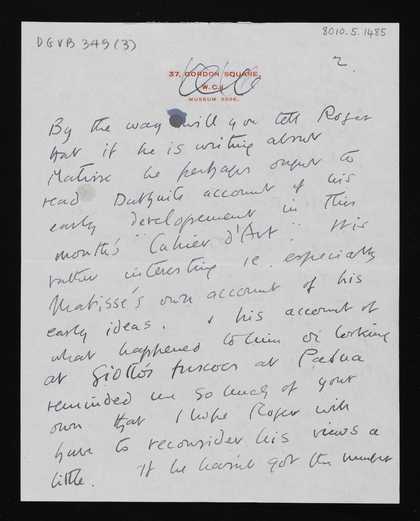 DGVB 349 (3)
8010.5.1485
2.
37, GORDON SQUARE,
W.C.1.
MUSEUM
By the way will you tell Roger
that if he is writing about
Matisse he perhaps ought to
read Duthuit's account of his
early developement in this
month's "Cahier d'Art". It is
rather interesting ie. especially
Matisse's own account of his
early ideas. & his account of
what happened to him on looking
at Giotto's frescoes at Padua
reminded me so much of your
own that I hope Roger will
have to reconsider his views a
little. If he hasn't got the number